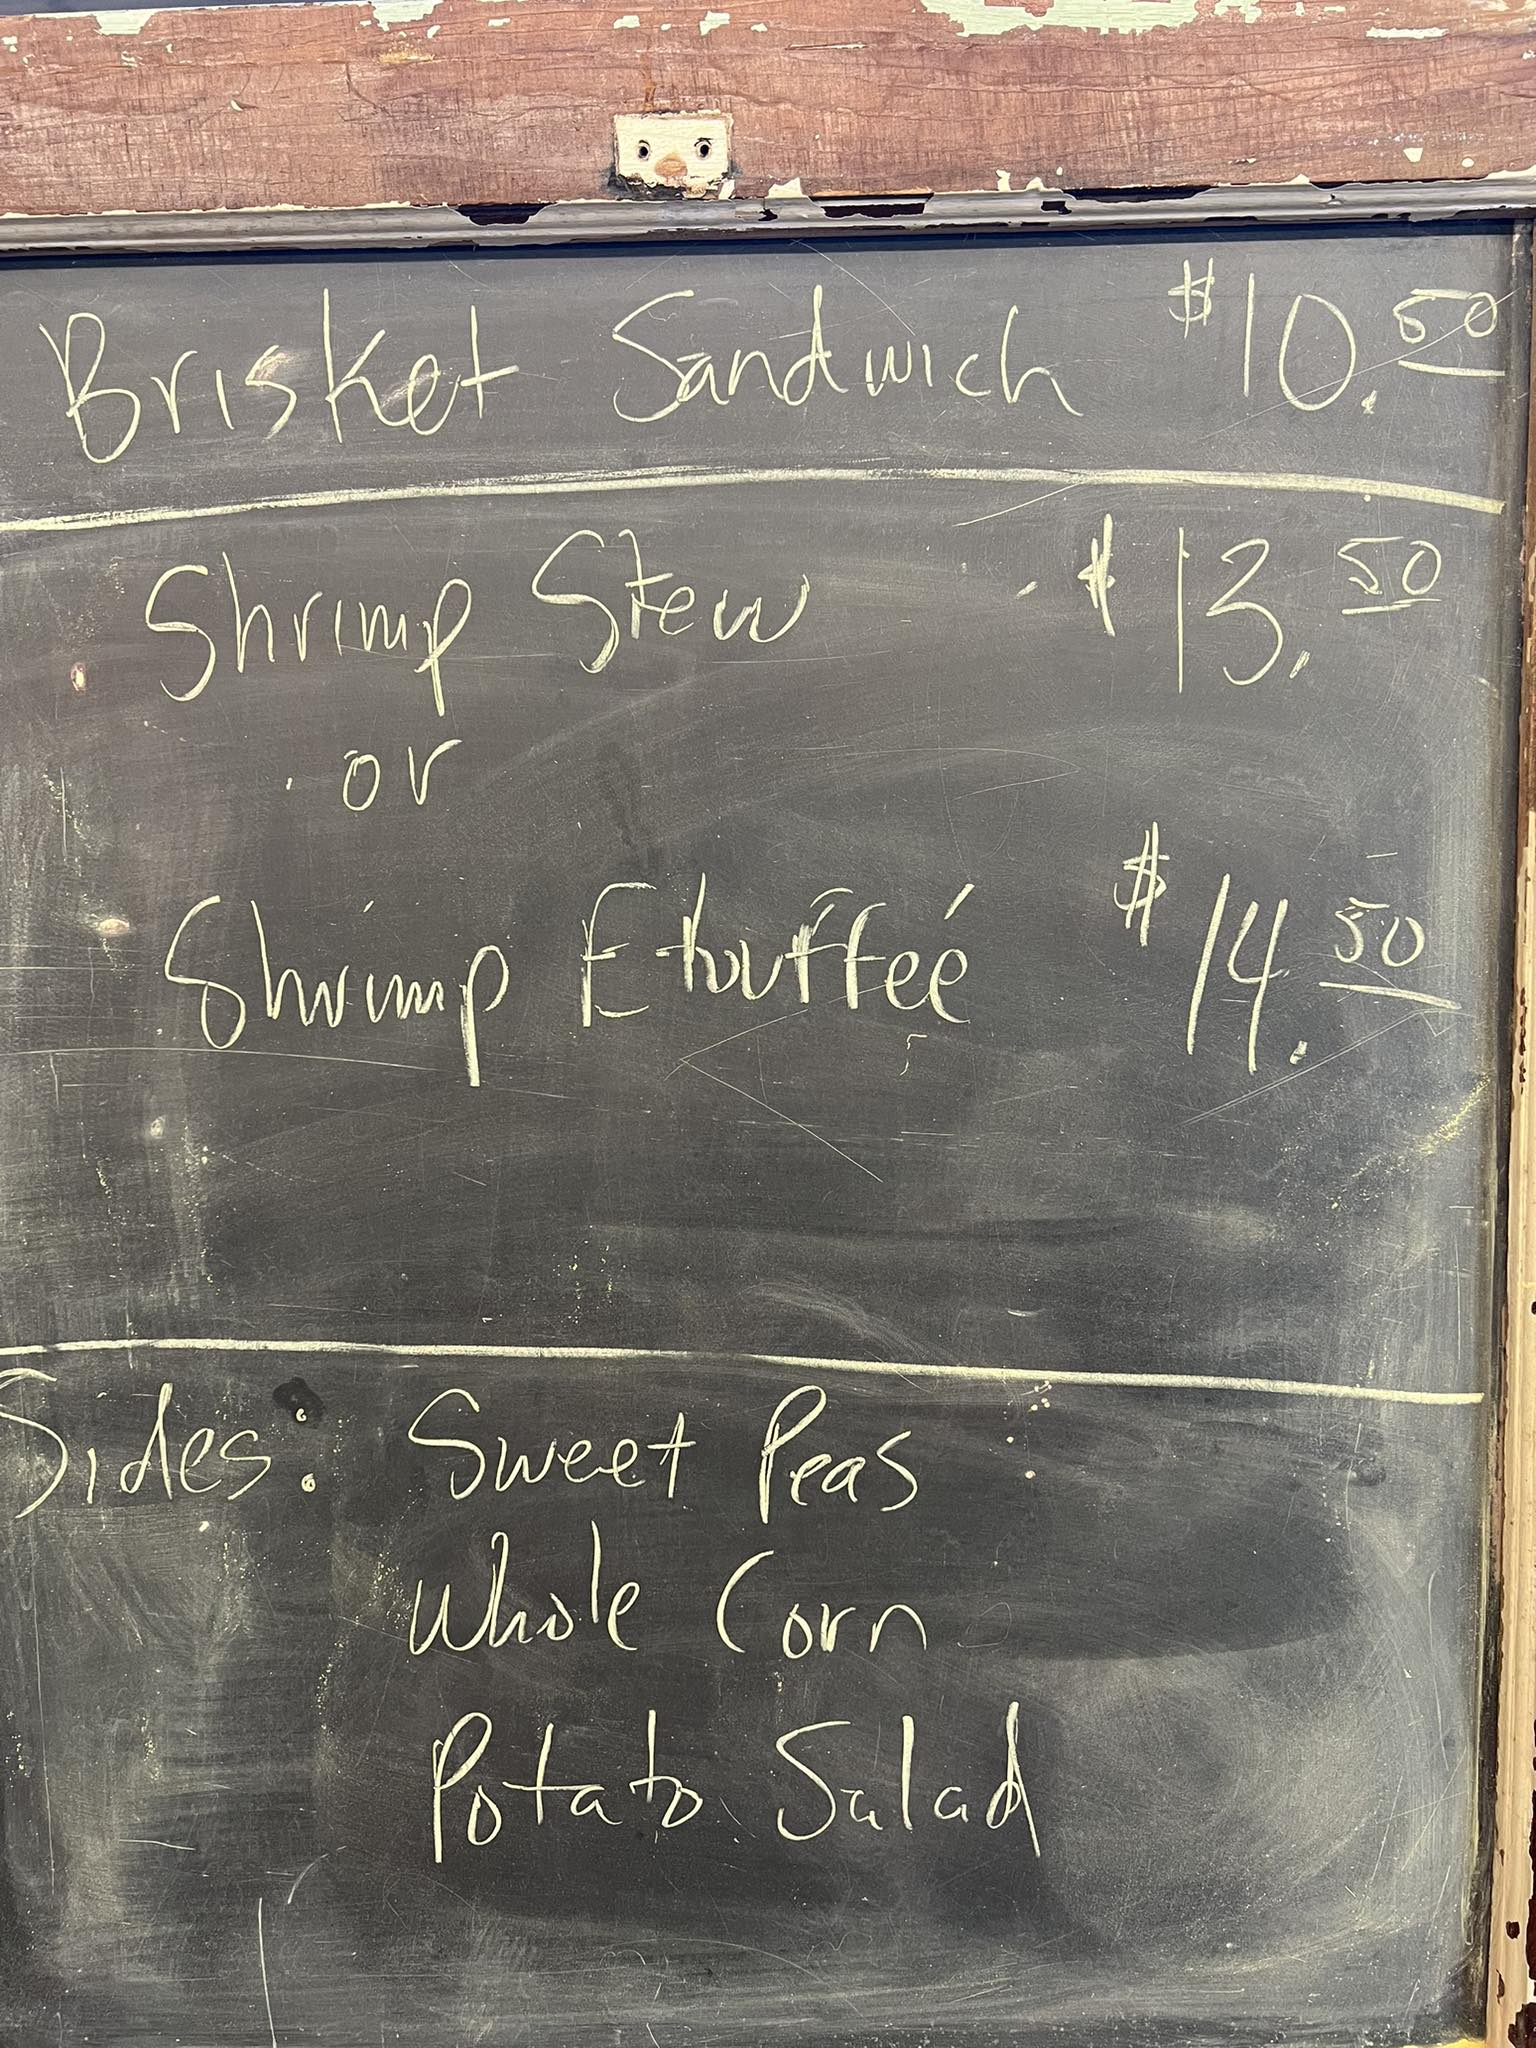 Brisket Sandwich $10.50
Shrimp Stew $13.50
or
Shrimp Etouffeé $14.50
Sides: Sweet Peas
Whole Corn
Potato Salad